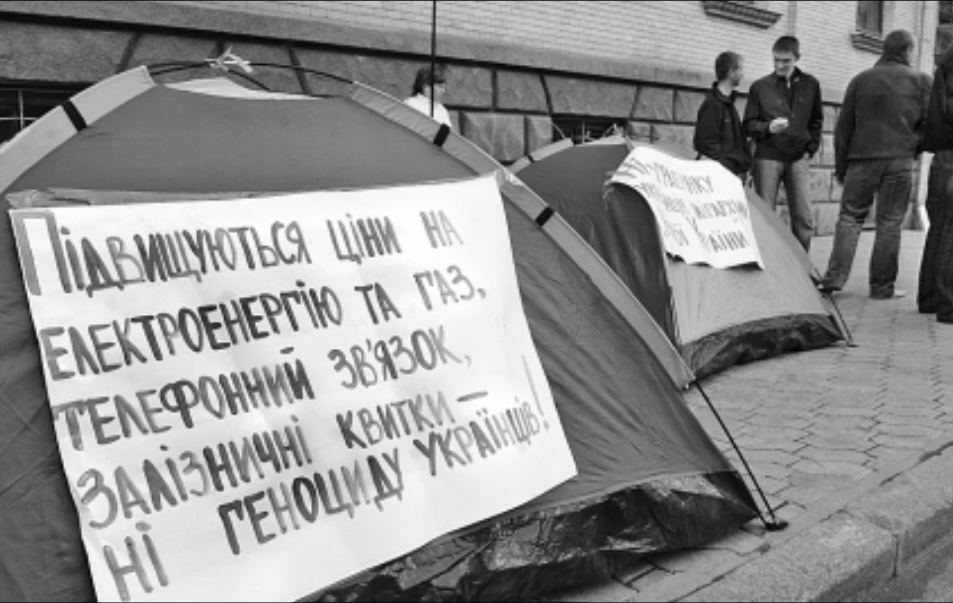 ПІДВИЩУЮТЬСЯ ЦІНИ НА
ЕЛЕКТРОЕНЕРГІЮ ТА ГАЗ,
ТЕЛЕФОННИЙ ЗВ'ЯЗОК,
ЗАЛІЗНИЧНІ КВИТКИ –
НІ ГЕНОЦИДУ УКРАЇНЦІВ!